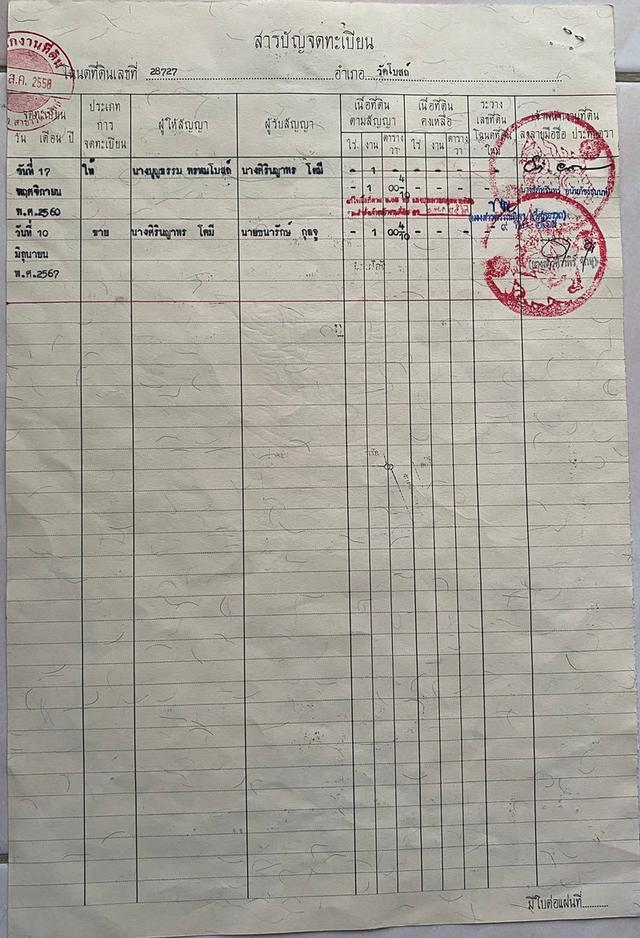 สารบัญจดทะเบียน
โฉนดที่ดินเลขที่ 28727 อำเภอ วัดโบสถ์
ส.ค. 2558
จดทะเบียน
วัน เดือน ปี
ประเภท
การ
จดทะเบียน
ผู้ให้สัญญา
ผู้รับสัญญา
เนื้อที่ดิน
ตามสัญญา
ไร่ งาน ตารางวา
เนื้อที่ดิน
คงเหลือ
ไร่ งาน ตารางวา
ระวาง
เลขที่ดิน
โฉนดที่ดิน
ใหม่
เจ้าพนักงานที่ดิน
ลงลายมือชื่อ ประทับตรา
วันที่ 17 ให้ นางบุญธรรม พรหมโบสถ์ - 1 - - - - -
พฤศจิกายน - 1 00 4/10
พ.ศ.2560
วันที่ 10 ขาย - 1 00 4/10 - - - -
มิถุนายน
พ.ศ.2567
มีใบต่อแผ่นที่..........